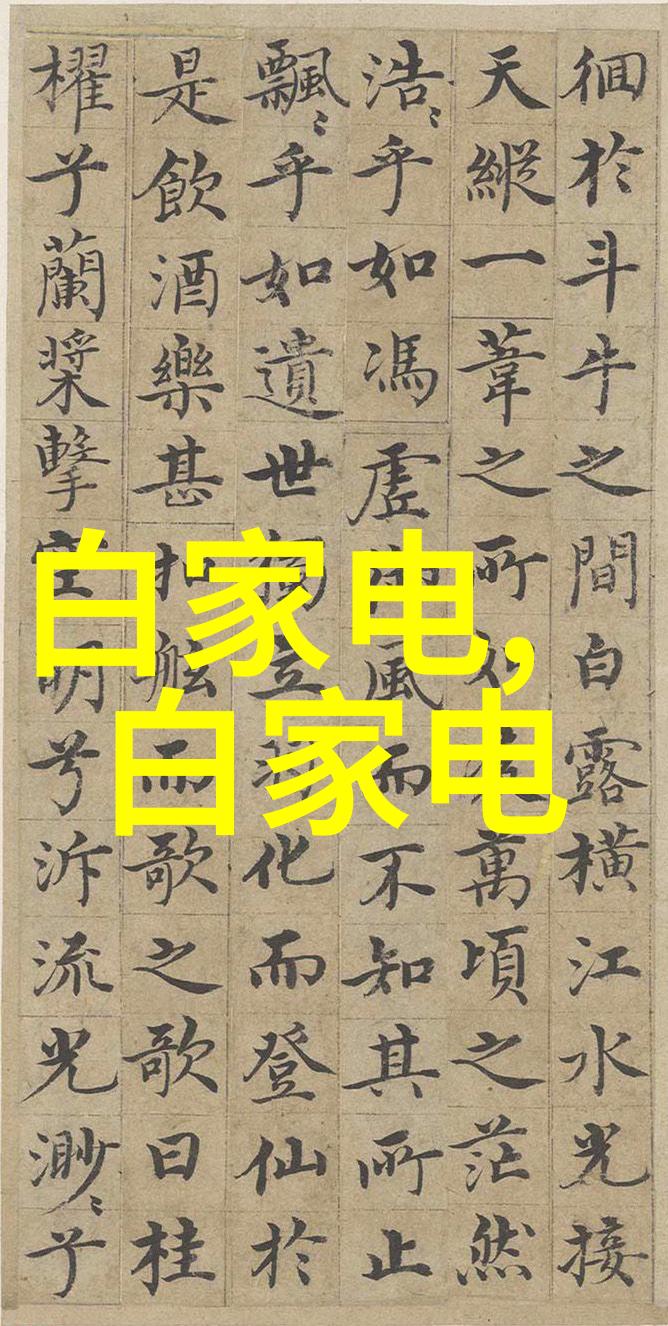 徊於斗牛之間白露橫江水光接
天縱一葦之所如萬頃之茫然
浩〻乎如馮虛風而不知其所止
飄〻乎如遺世獨立羽化而登仙於
是飲酒樂甚扣舷而歌之歌曰桂
櫂兮蘭槳擊空明兮泝流光渺〻兮
白家电,
白家电